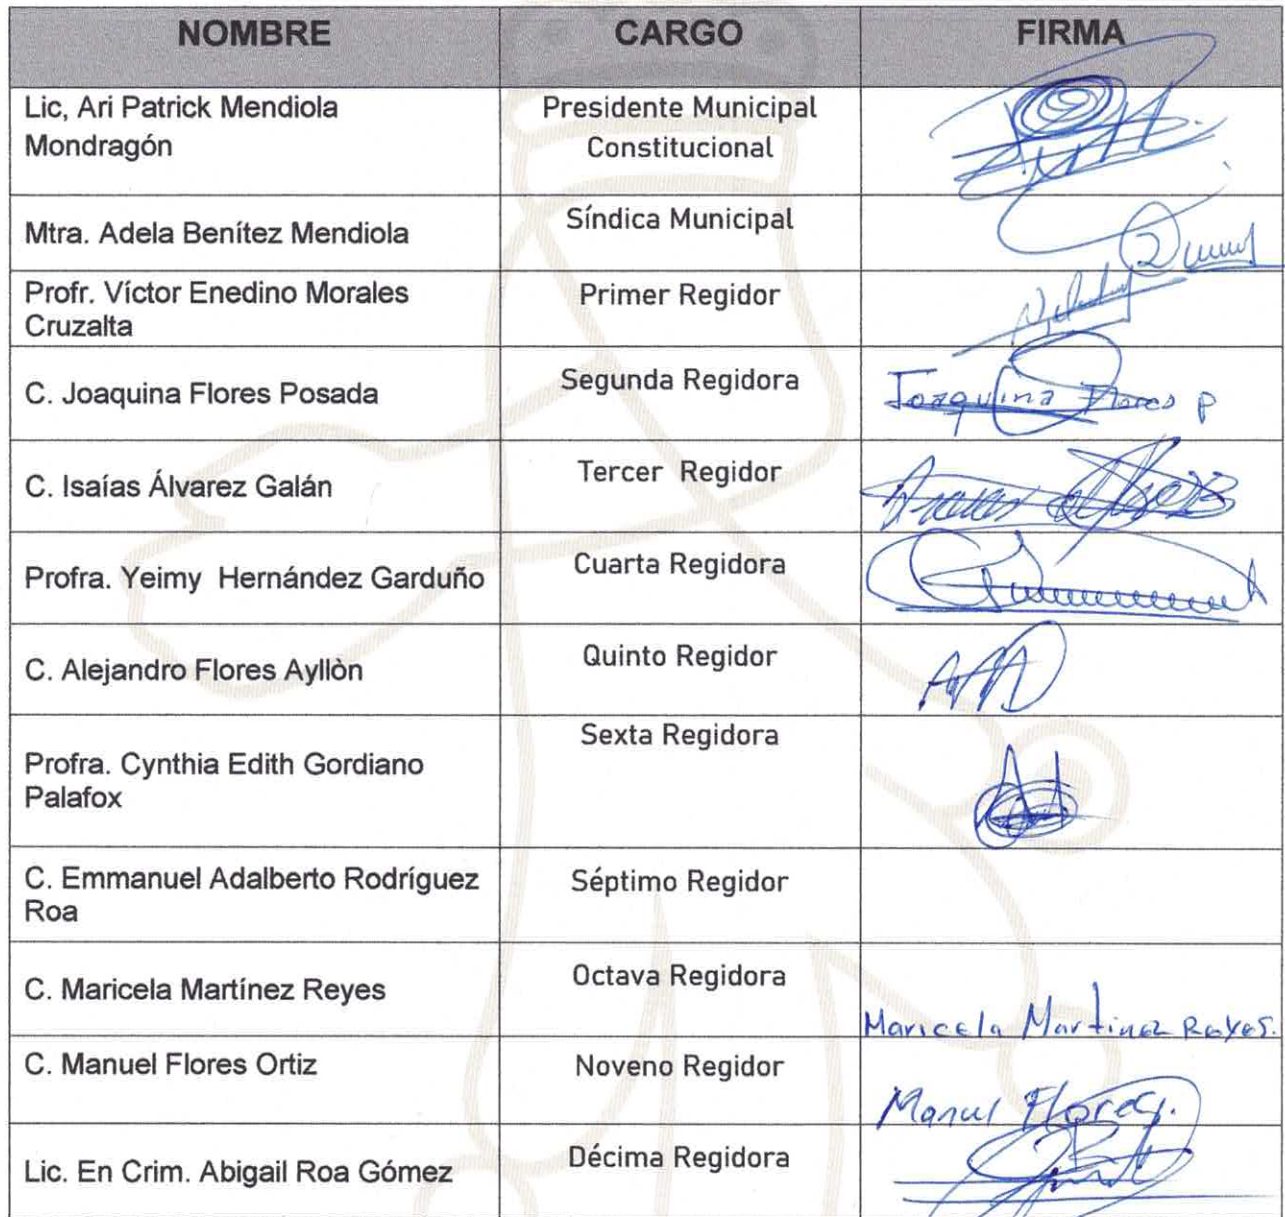 NOMBRE CARGO FIRMA
Lic, Ari Patrick Mendiola
Mondragón
Presidente Municipal
Constitucional
Mtra. Adela Benítez Mendiola
Síndica Municipal
Profr. Víctor Enedino Morales
Cruzalta
Primer Regidor
C. Joaquina Flores Posada
Segunda Regidora
Joaquina Flores P
C. Isaías Álvarez Galán
Tercer Regidor
Profra. Yeimy Hernández Garduño
Cuarta Regidora
C. Alejandro Flores Ayllòn
Quinto Regidor
Profra. Cynthia Edith Gordiano
Palafox
Sexta Regidora
C. Emmanuel Adalberto Rodríguez
Roa
Séptimo Regidor
C. Maricela Martínez Reyes
Octava Regidora
Maricela Martinez Reyes.
C. Manuel Flores Ortiz
Noveno Regidor
Manuel Flores
Lic. En Crim. Abigail Roa Gómez
Décima Regidora